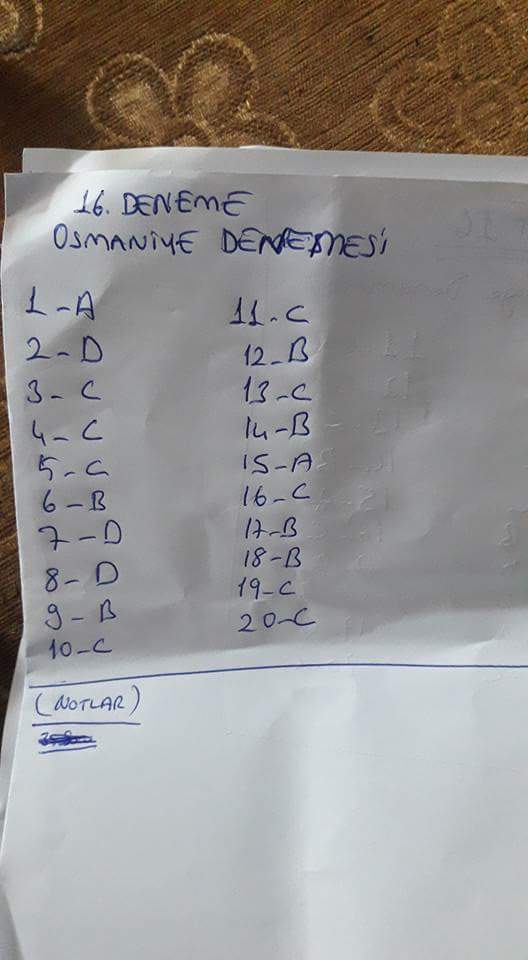 16. DENEME
OSMANİYE DENEMESİ
1-A
2-D
3-C
4-C
5-C
6-B
7-D
8-D
9-B
10-C
11-C
12-B
13-C
14-B
15-A
16-C
17-B
18-B
19-C
20-C
(NOTLAR)